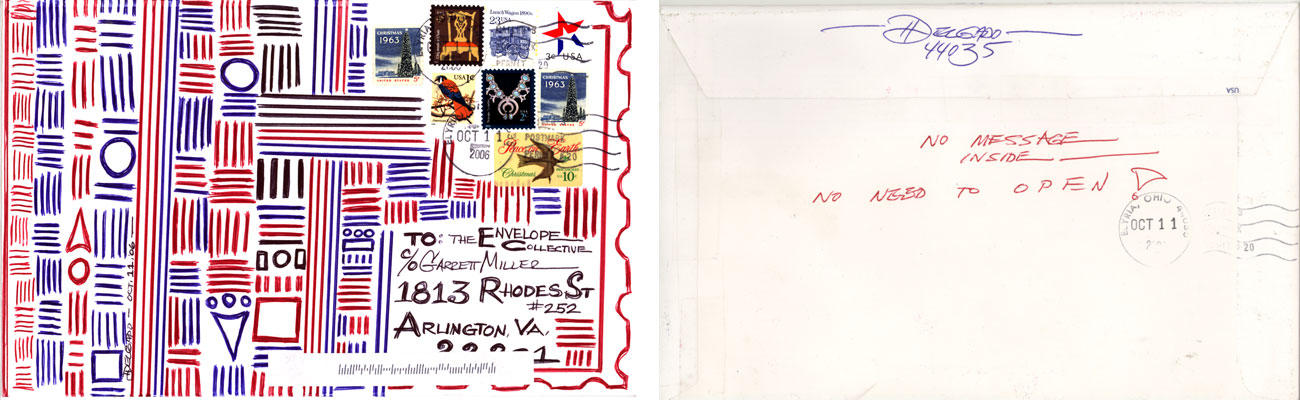 CHRISTMAS
1963
UNITED STATES 5c
Lunch Wagon 1890s
23 USA
3c USA
USA 1c
CHRISTMAS
1963
OCT 11
2006
POSTMARK
20
Peace on Earth
Christmas
10c
TO: THE ENVELOPE
COLLECTIVE
C/O GARRETT MILLER
1813 RHODES ST
#252
ARLINGTON, VA.
DELGADO — OCT. 11. 06 —
DELGADO
44035
USA
NO MESSAGE
INSIDE
NO NEED TO OPEN
ELYRIA, OHIO 44035
OCT 11
20